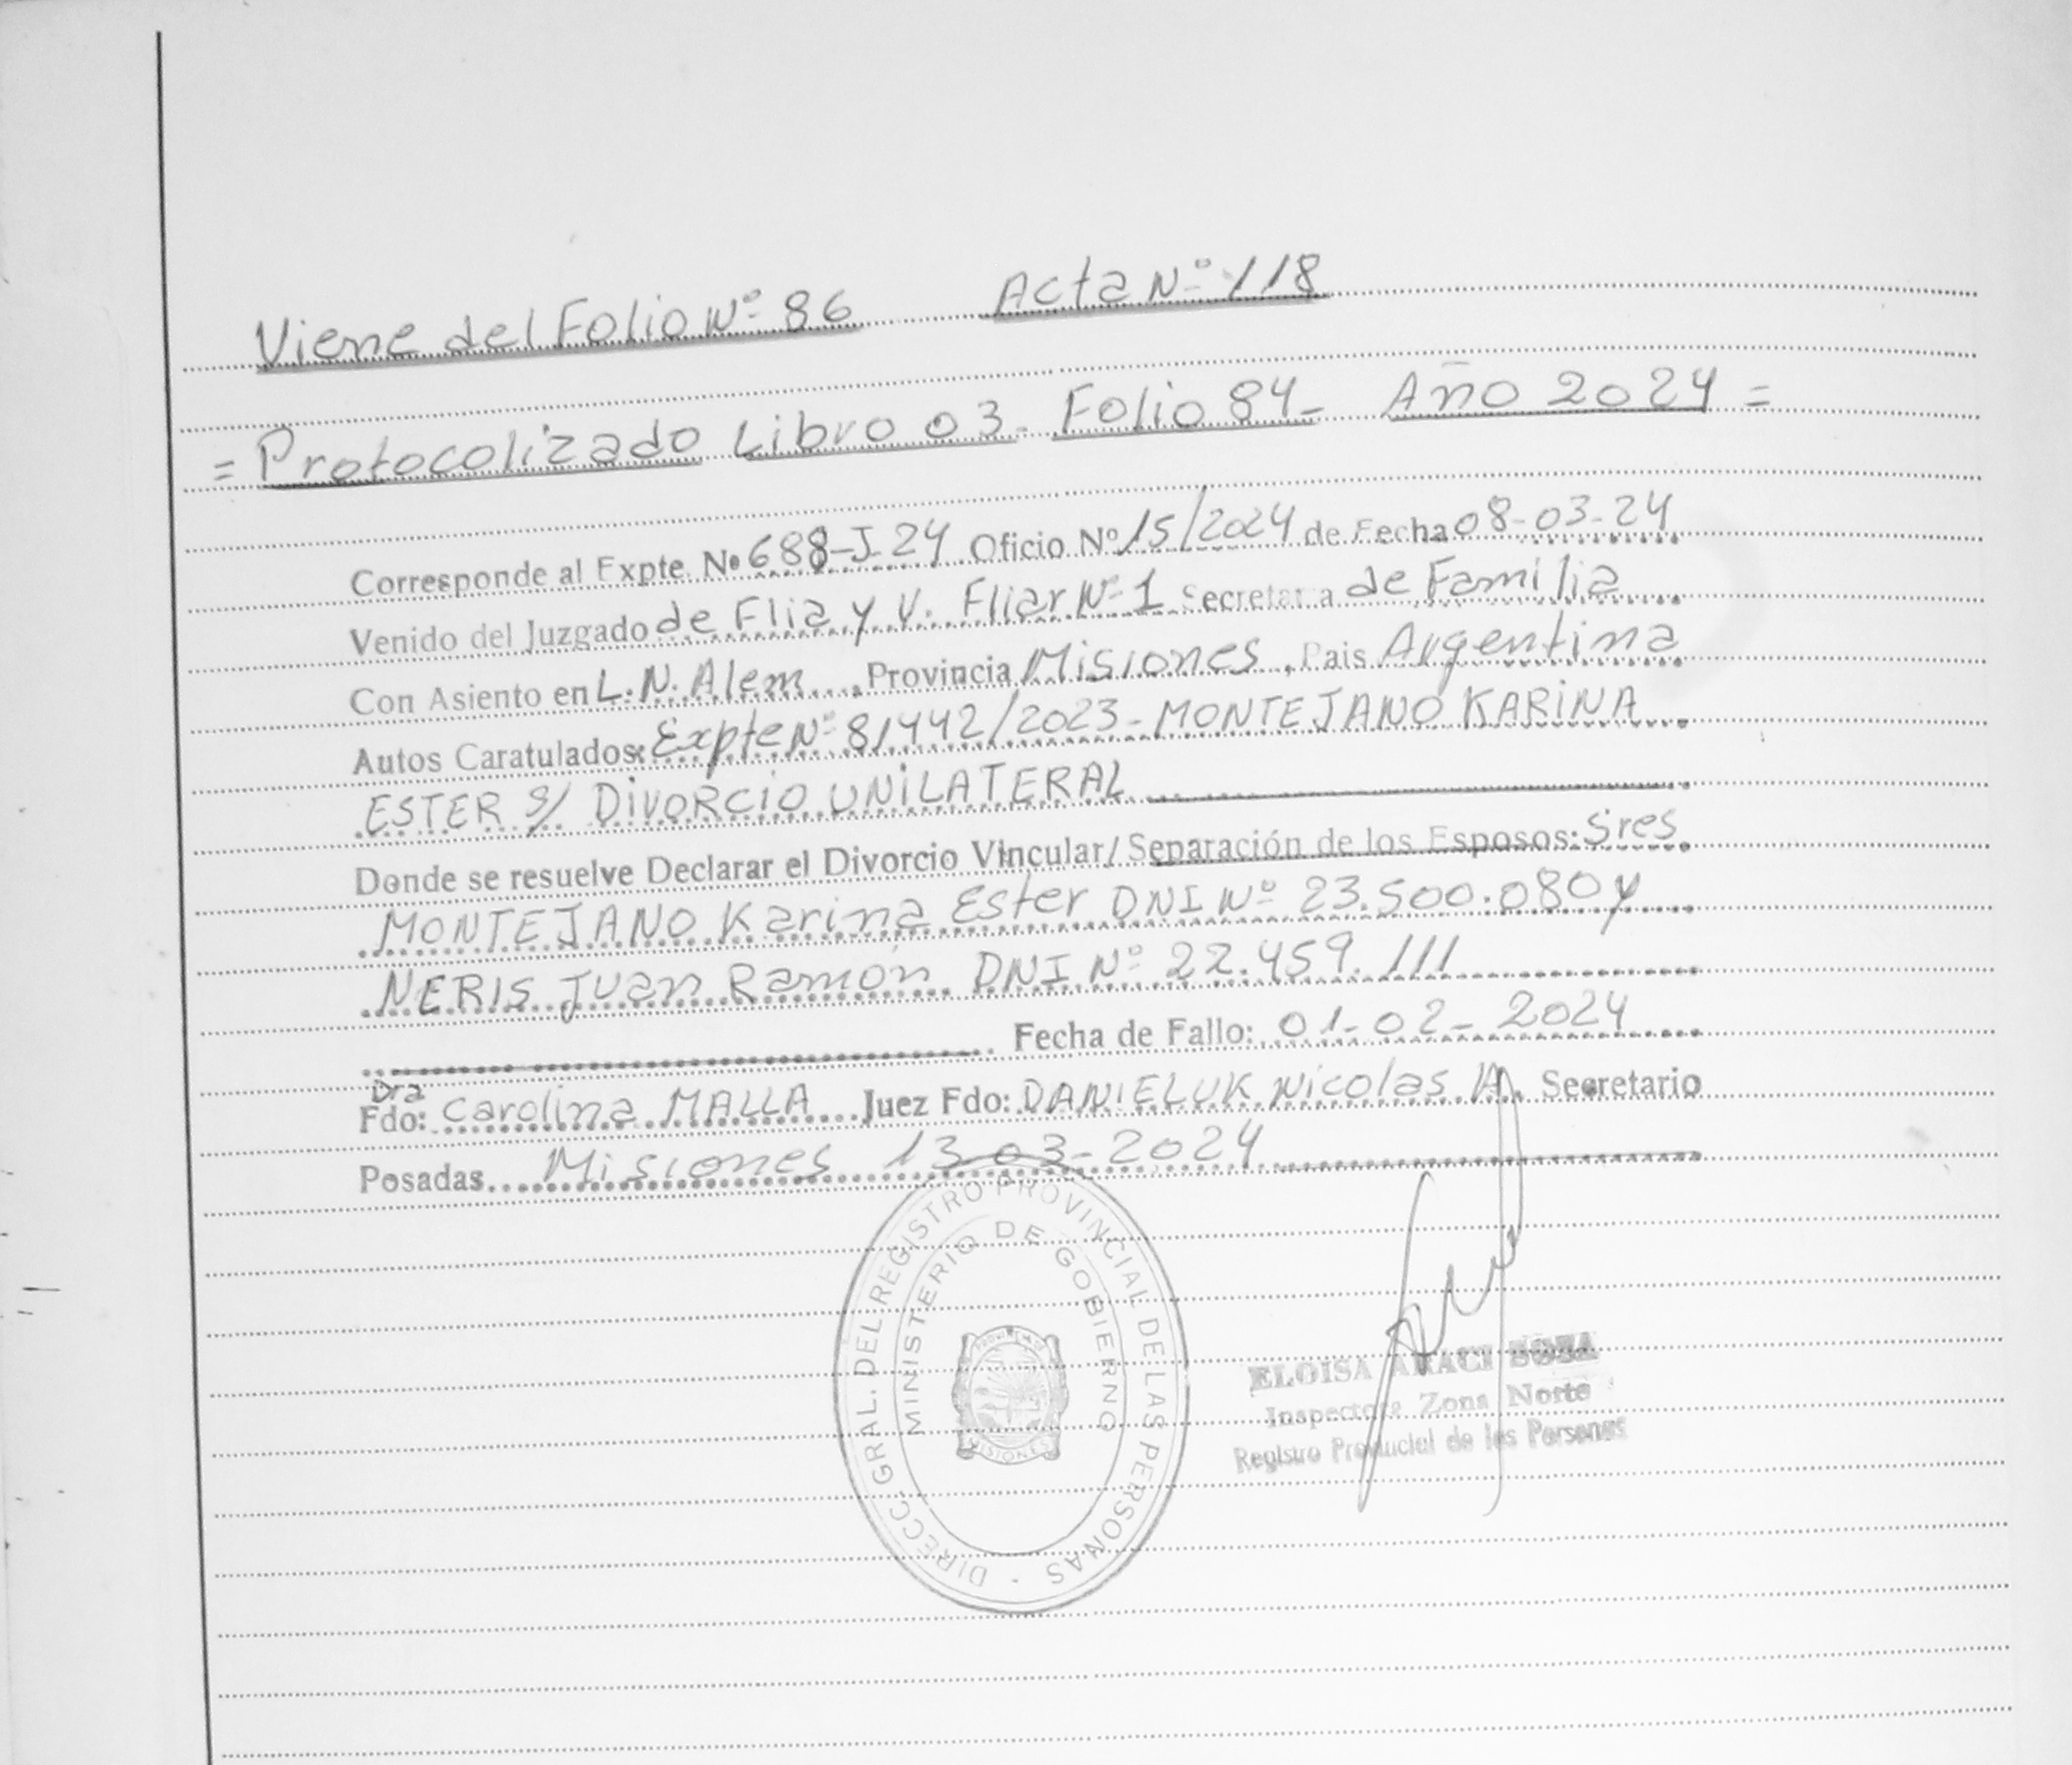 Viene del Folio Nº 86 Acta Nº 118
= Protocolizado Libro 03- Folio 84- Año 2024 =
Corresponde al Expte. Nº 688-J-24 Oficio Nº 15/2024 de Fecha 08-03-24
Venido del Juzgado de Flia y V. Fliar Nº 1 Secretaria de Familia
Con Asiento en L.N. Alem, Provincia Misiones, Pais Argentina
Autos Caratulados: Expte Nº 81442/2023- MONTEJANO KARINA
ESTER S/ DIVORCIO UNILATERAL
Donde se resuelve Declarar el Divorcio Vincular/ Separación de los Esposos: Sres
MONTEJANO Karina Ester DNI Nº 23.500.080 y
NERIS Juan Ramón DNI Nº 22.459.111
Fecha de Fallo: 01-02-2024
Dra
Fdo: Carolina MALLA Juez Fdo: DANIELUK Nicolas A. Secretario
Posadas Misiones 13-03-2024
DIRECC. GRAL. DEL REGISTRO PROVINCIAL DE LAS PERSONAS -
MINISTERIO DE GOBIERNO
MISIONES
ELOISA ARACI SOSA
Inspectora Zona Norte
Registro Provincial de las Personas